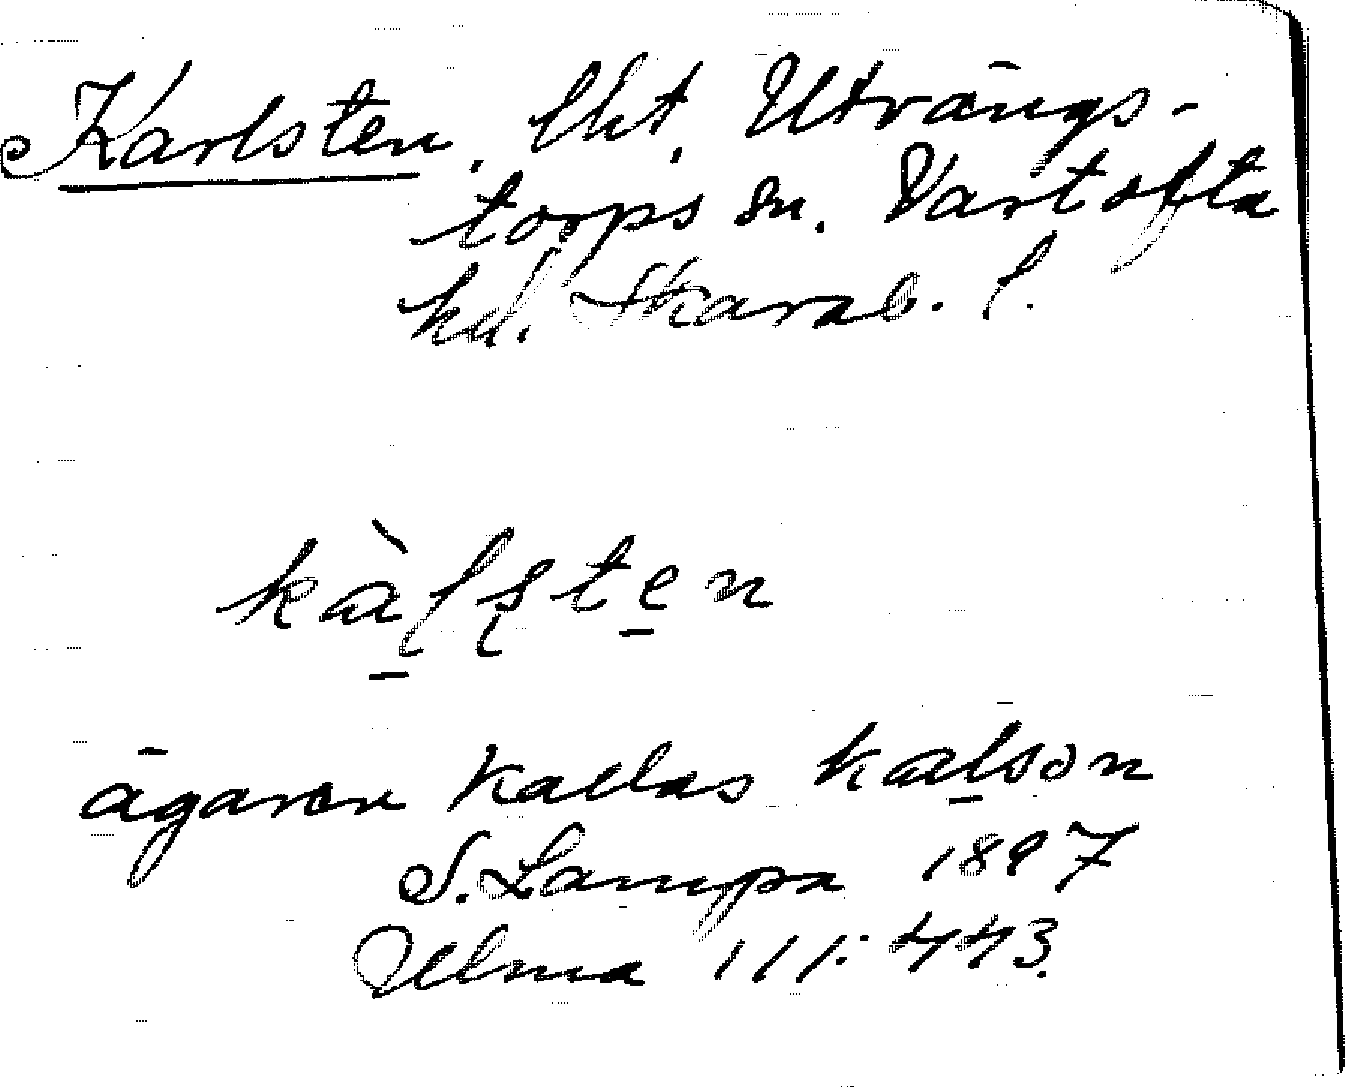 Karlsten, lht, Utvängs-
torps sn. Vartofta
hd. Skarab. l.
kàlsten
ägaren kallas kalson
S. Lampa 1897
Ulma 111:443.